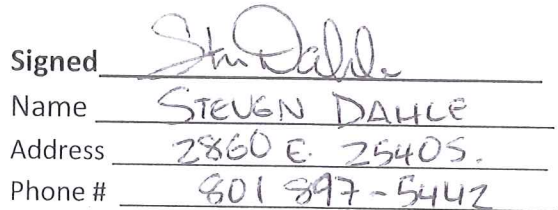 Signed Stn Dahle
Name STEVEN DAHLE
Address 2860 E. 2540 S.
Phone # 801 897-5442